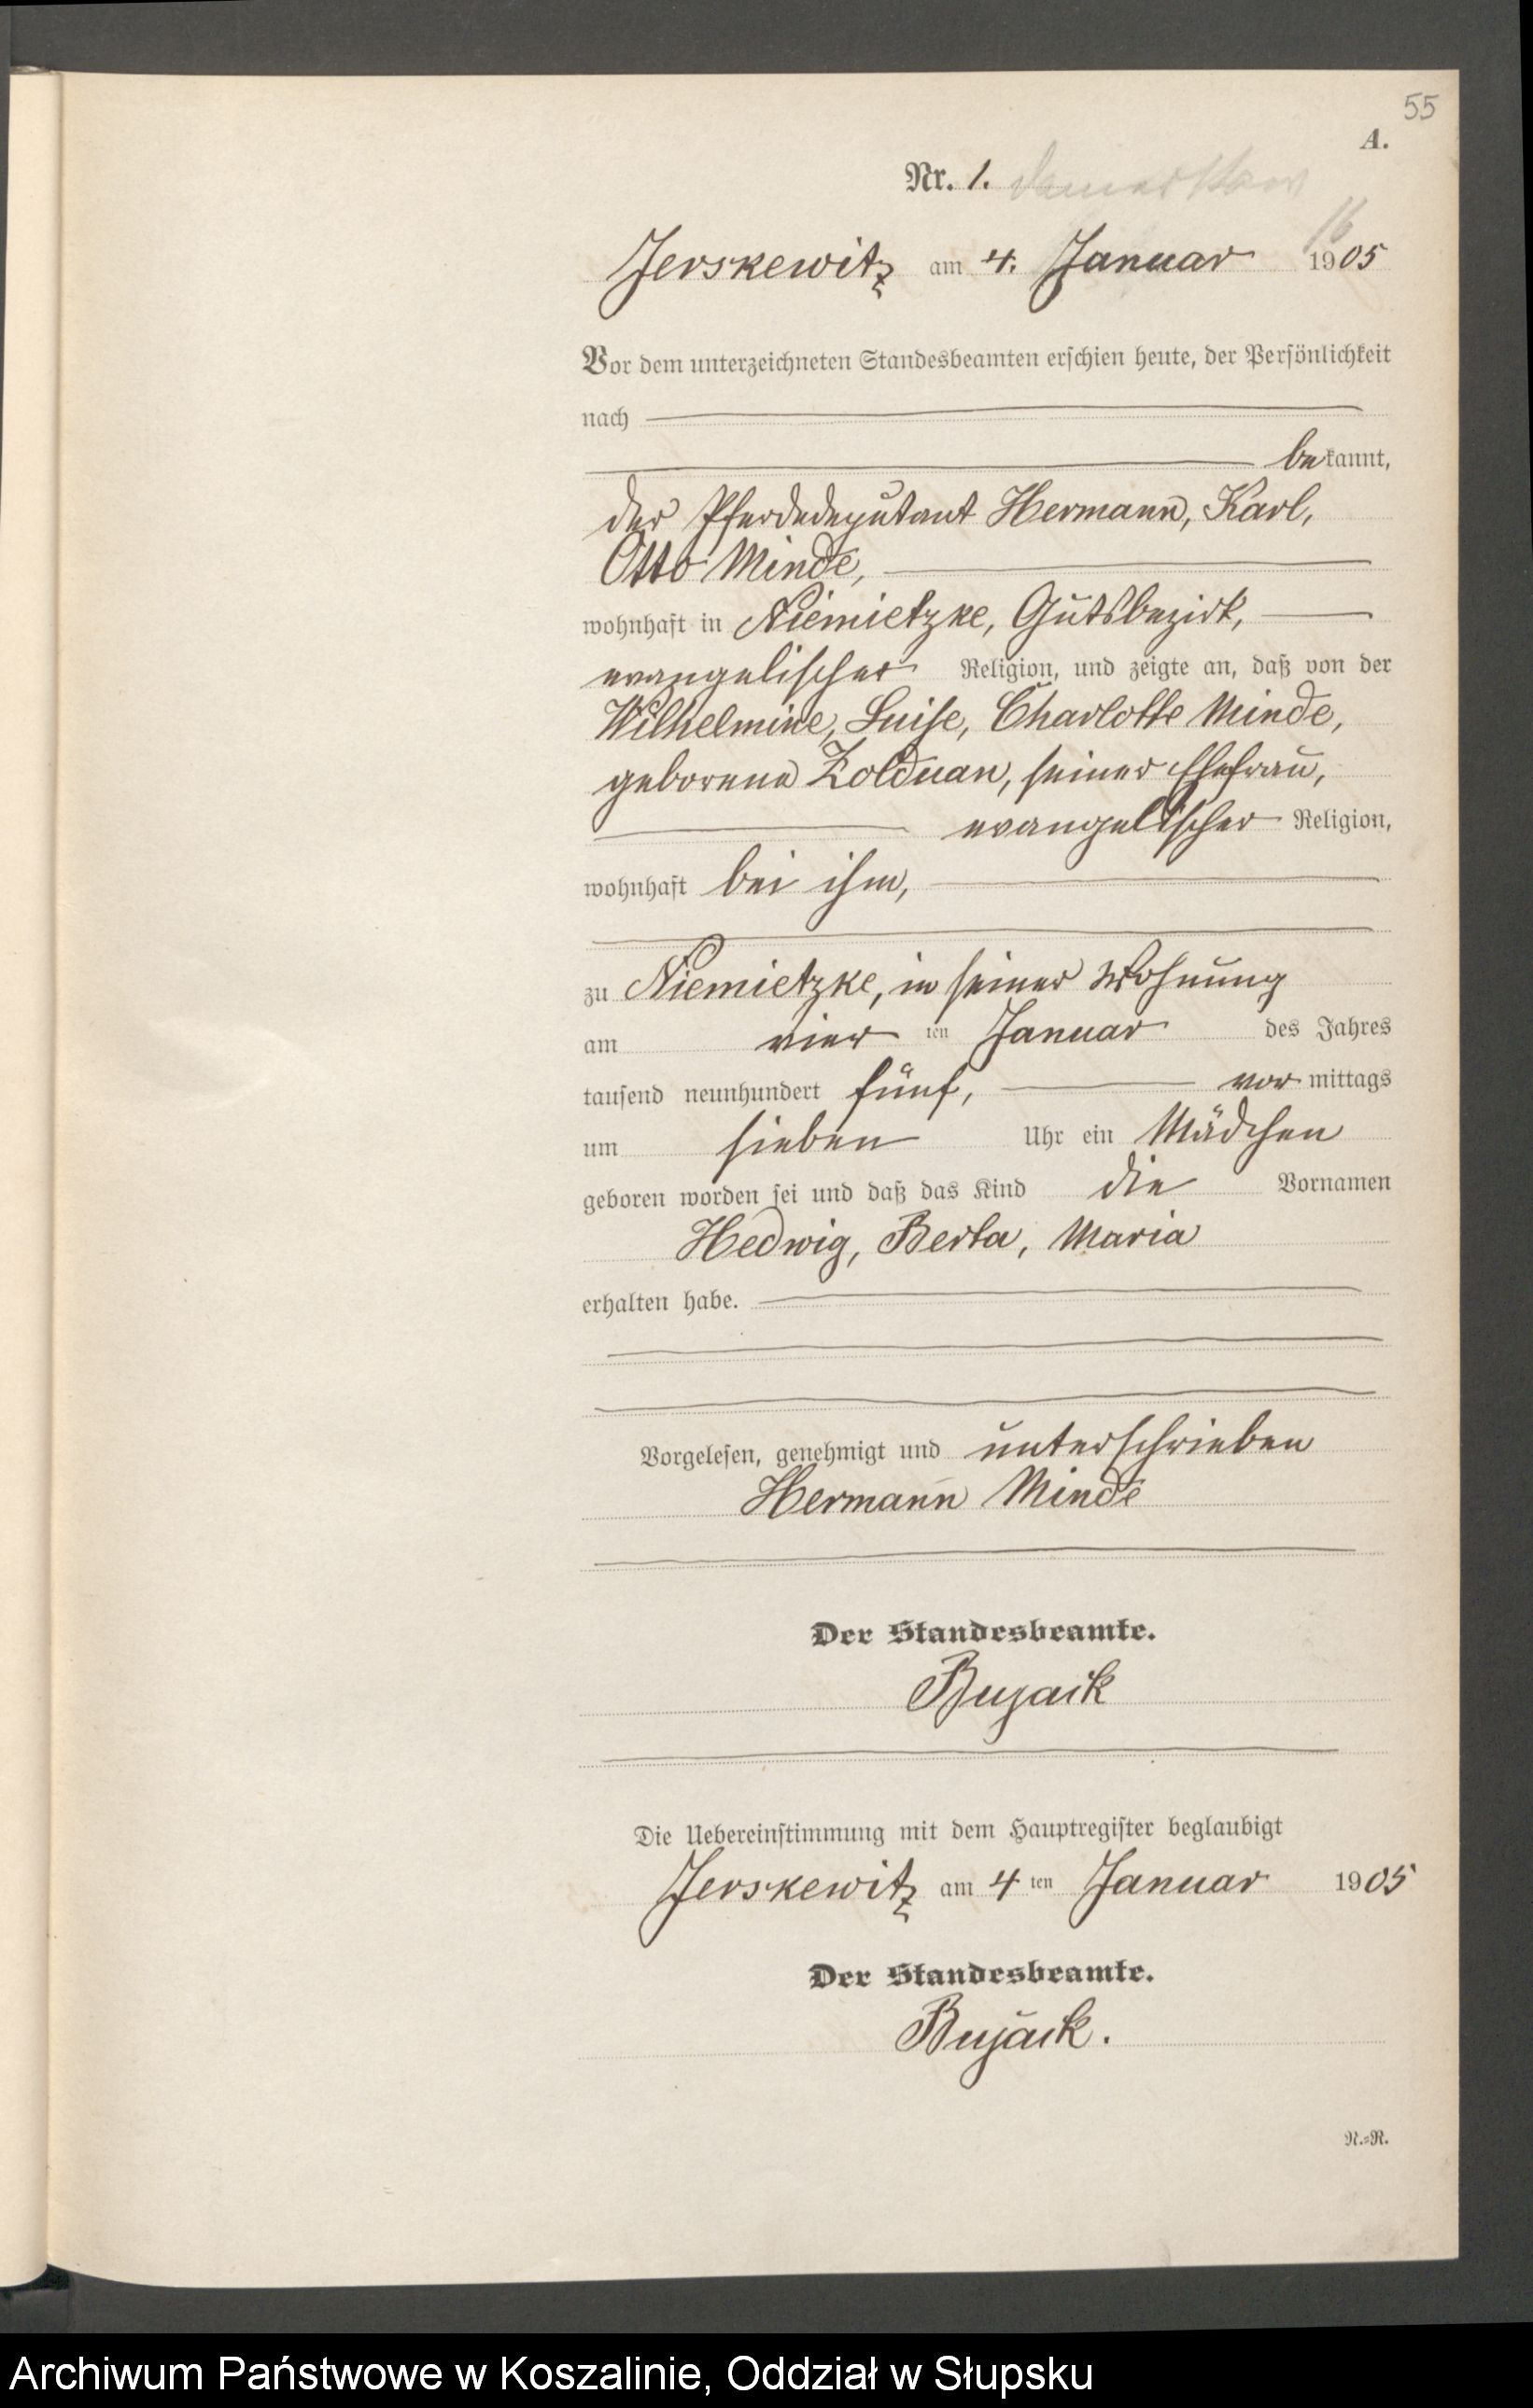 55
A.
Nr. 1.
16
Jerskewitz am 4. Januar 1905
Vor dem unterzeichneten Standesbeamten erschien heute, der Persönlichkeit
nach
bekannt,
der Pferdedeputant Hermann, Karl,
Otto Minde,
wohnhaft in Niemietzke, Gutsbezirk,
evangelischer Religion, und zeigte an, daß von der
Wilhelmine, Luise, Charlotte Minde,
geborene Zolduan, seiner Ehefrau,
evangelischer Religion,
wohnhaft bei ihm,
zu Niemietzke, in seiner Wohnung
am vier ten Januar des Jahres
tausend neunhundert fünf, vor mittags
um sieben Uhr ein Mädchen
geboren worden sei und daß das Kind die Vornamen
Hedwig, Berta, Maria
erhalten habe.
Vorgelesen, genehmigt und unterschrieben
Hermann Minde
Der Standesbeamte.
Bujack
Die Uebereinstimmung mit dem Hauptregister beglaubigt
Jerskewitz am 4 ten Januar 1905
Der Standesbeamte.
Bujack.
N.=R.
Archiwum Państwowe w Koszalinie, Oddział w Słupsku